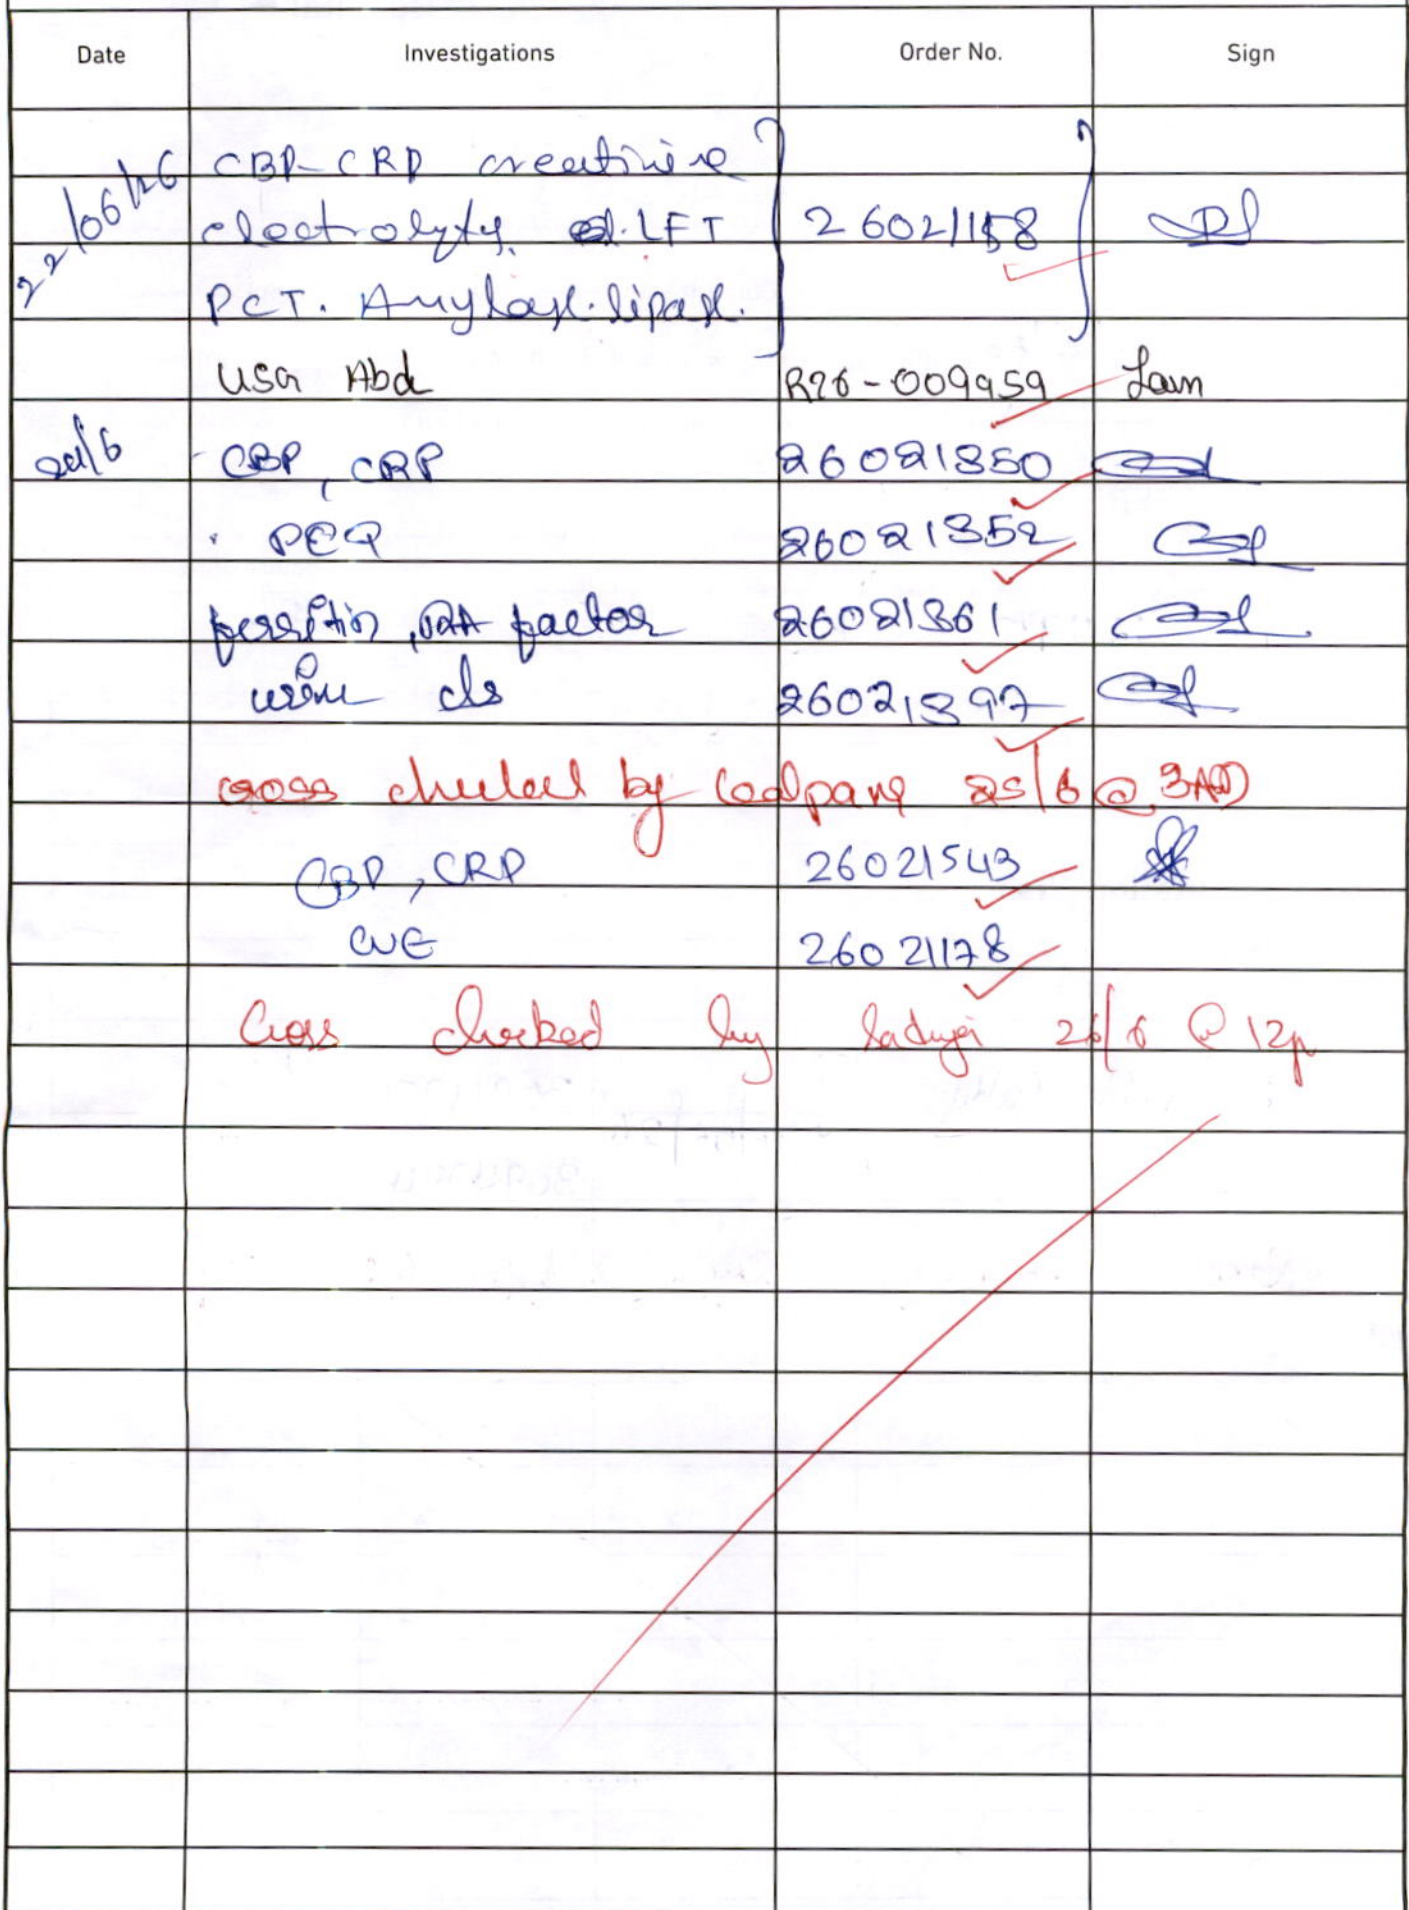 Date Investigations Order No. Sign
22/06/26 CBP-CRP creatinine
electrolytes. LFT 26021158
PCT. Amylase. lipase.
USG Abd R26-009959
24/6 CBP, CRP 26021350
26021352
ferritin, RA factor 26021361
urine c/s 26021397
cross checked by Kalpana 25/6 @
CBP, CRP 26021543
CUE 26021178
Cross checked by 26/6 @ 12p